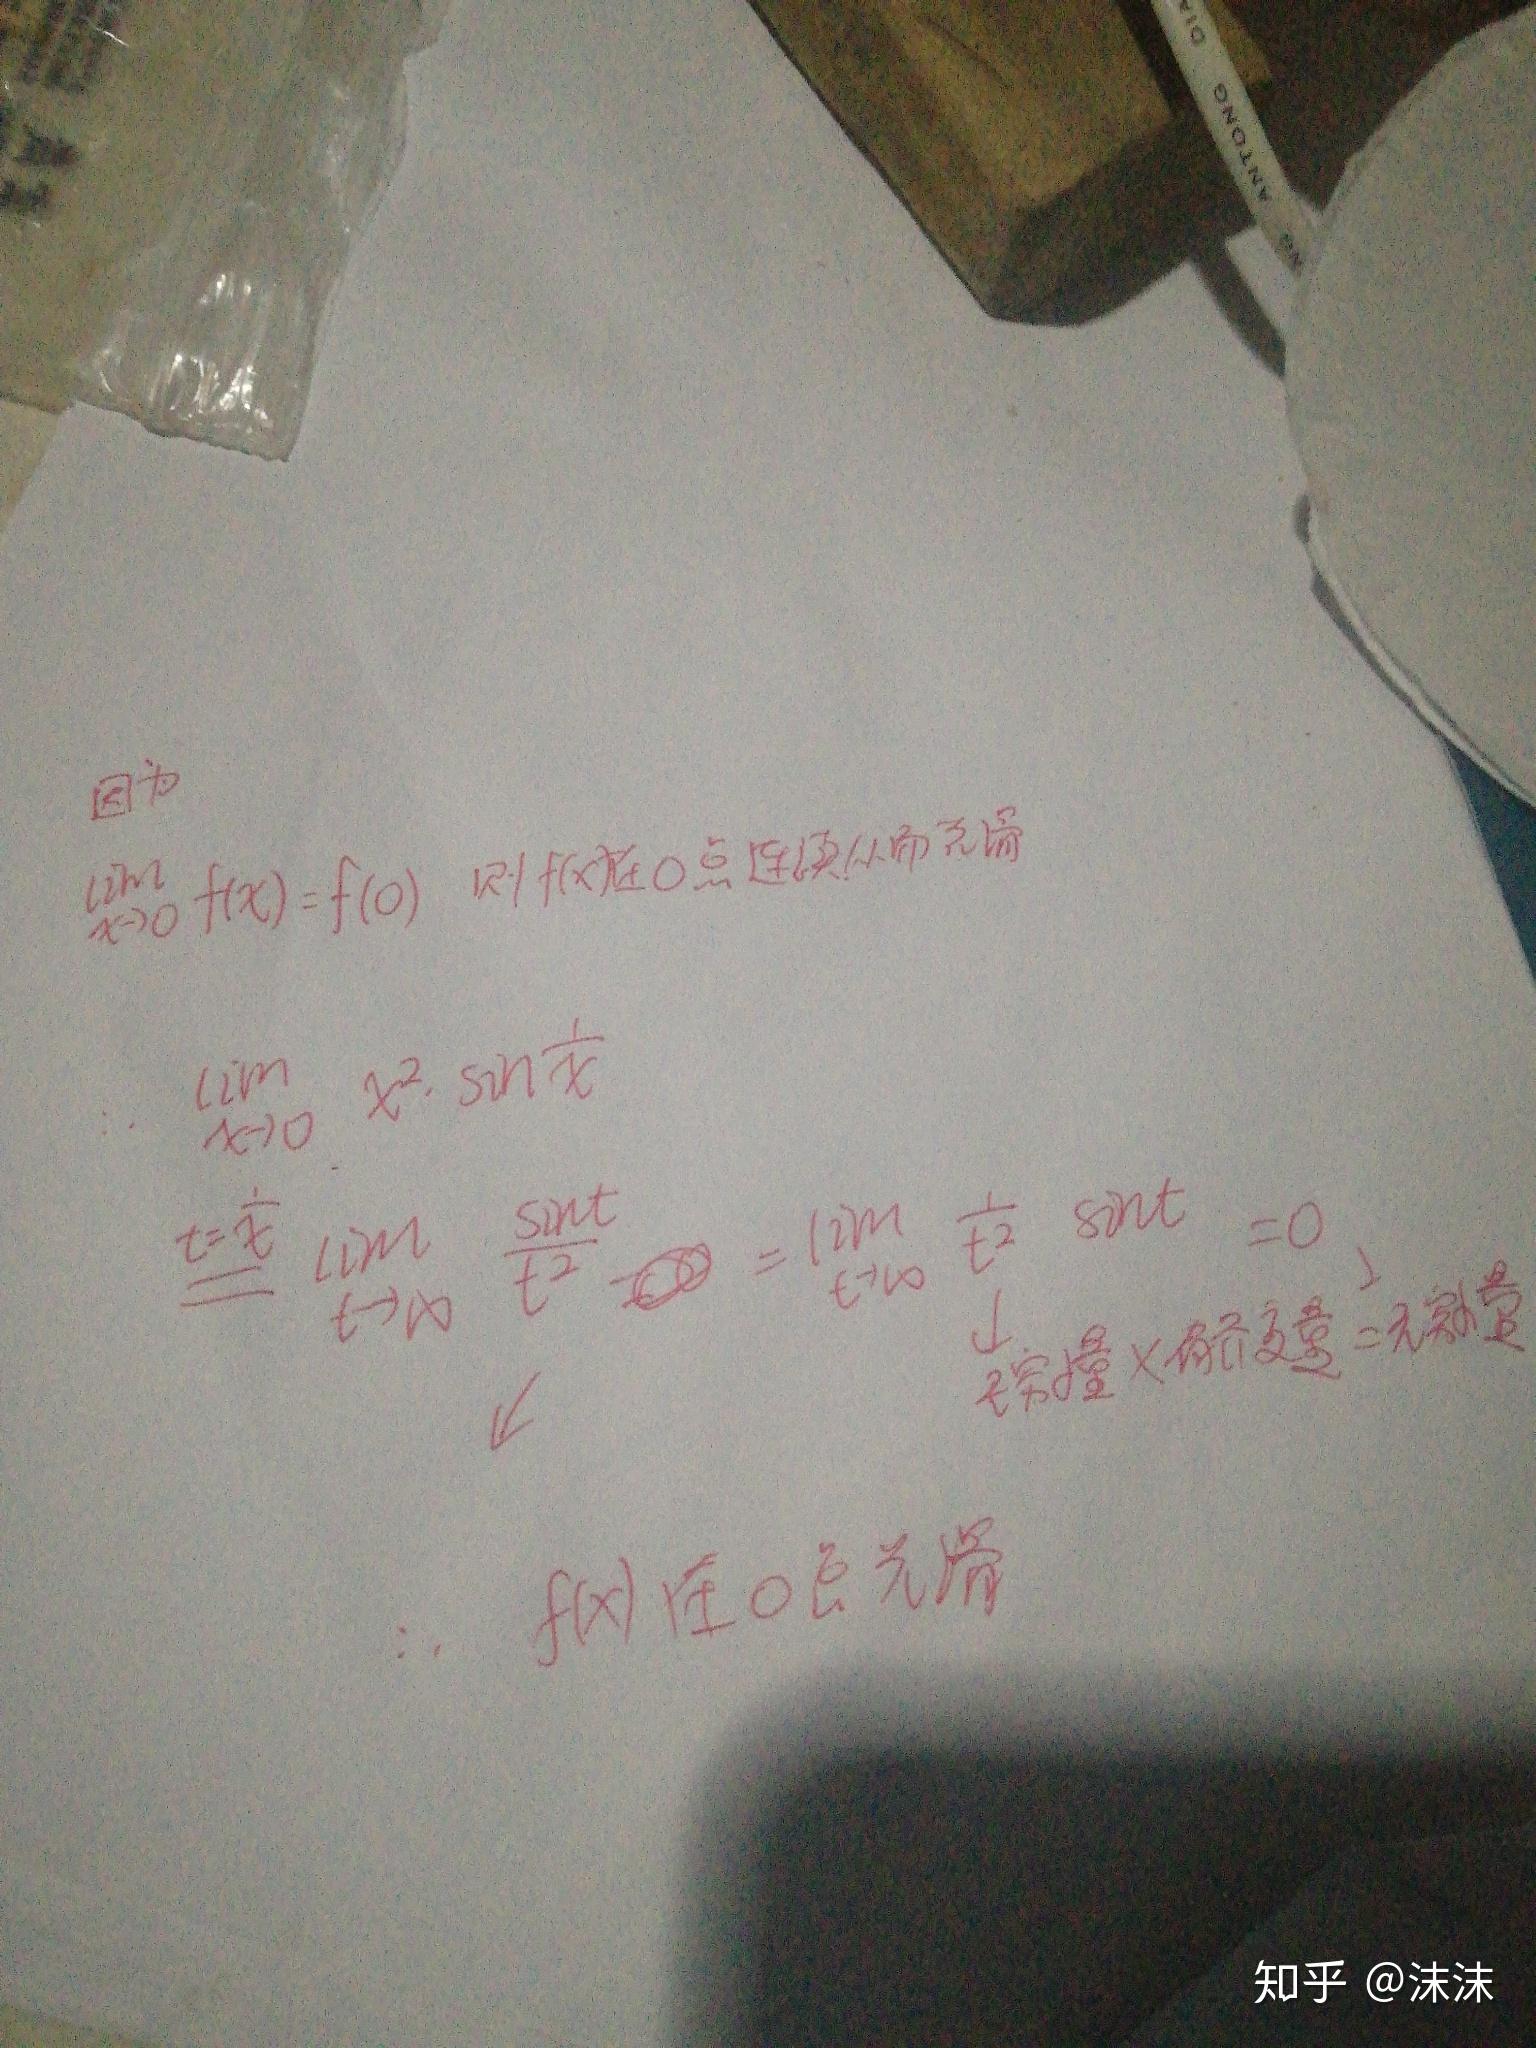 ANTONG DIA
NG
因为
lim f(x)=f(0) 则 f(x)在0点连续从而光滑
x→0
∴ lim x²· sin 1/x
x→0
t=1/x lim sint/t² = lim 1/t² sint =0
t→∞ t→∞
无穷小量×有界变量=无穷小量
∴ f(x)在0点光滑
知乎 @沫沫